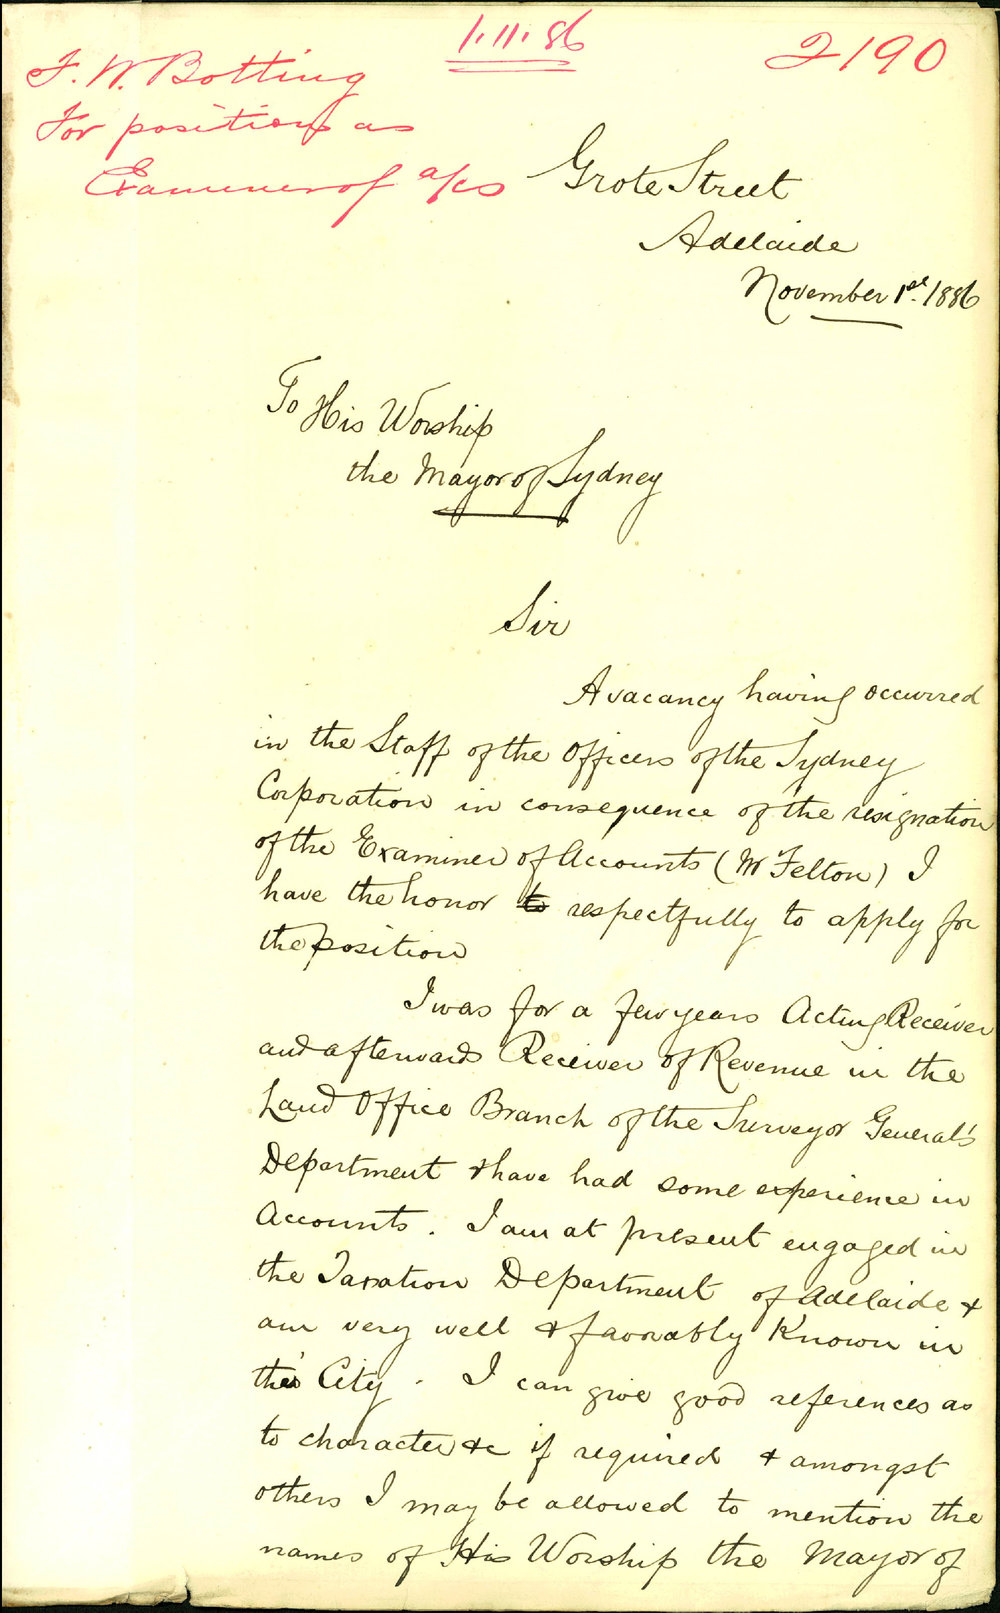 1.11.86
2190
F. W. Botting
For position as
Examiner of a/cs
Grote Street
Adelaide
November 1st. 1886
To His Worship
the Mayor of Sydney
Sir
A vacancy having occurred
in the Staff of the Officers of the Sydney
Corporation in consequence of the resignation
of the Examiner of Accounts (Mr Felton) I
have the honor to respectfully to apply for
the position
I was for a few years Acting Receiver
and afterwards Receiver of Revenue in the
Land Office Branch of the Surveyor General's
Department & have had some experience in
Accounts. I am at present engaged in
the Taxation Department of Adelaide &
am very well & favorably known in
this City. I can give good references as
to character &c if required & amongst
others I may be allowed to mention the
names of His Worship the Mayor of